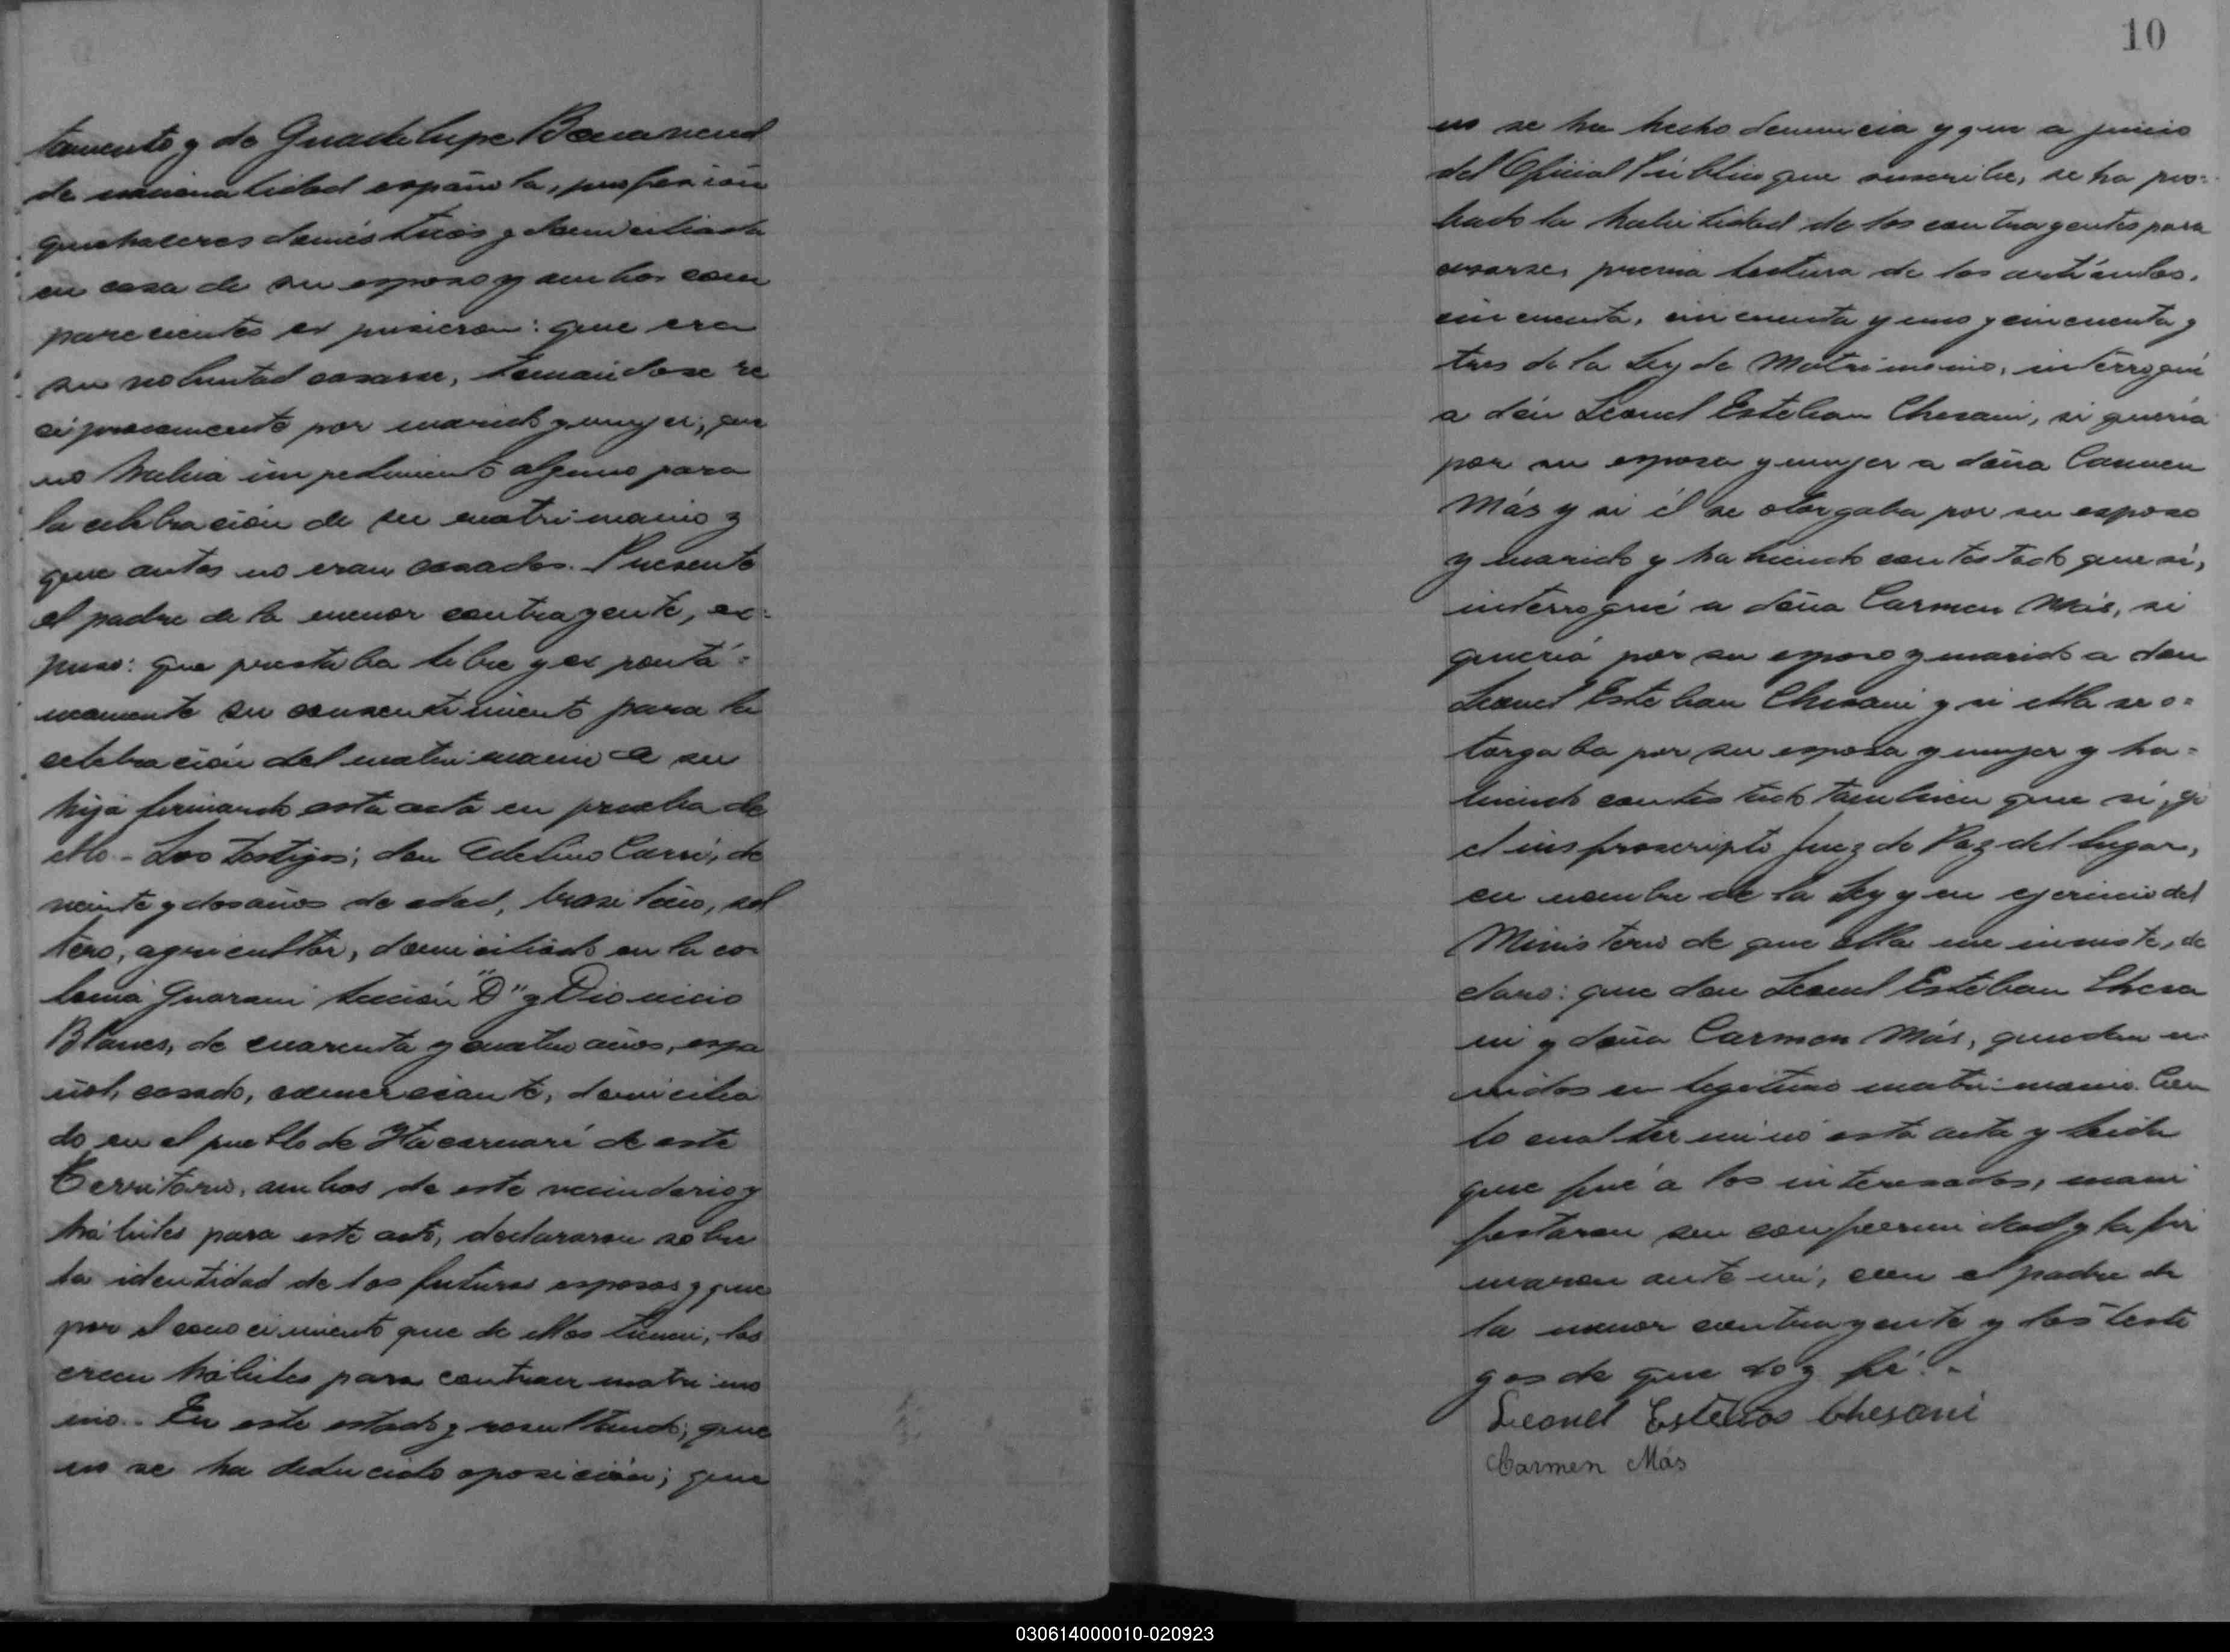 tamento y de Guadelupe
de nacionalidad española, profesión
quehaceres domésticos y domiciliada
en casa de su esposo y ambos com
parecientes expusieron: que era
su voluntad casarse, tomandose re
ciprocamente por marido y mujer; que
no habia impedimento alguno para
la celebración de su matrimonio y
que antes no eran casados. Presente
el padre de la menor contrayente, ex=
puso: que prestaba libre y expontá=
neamente su consentimiento para la
celebración del matrimonio de su
hija firmando esta acta en prueba de
ello.- Los testigos; don Adelino Carré, de
veinte y dos años de edad, brasileño, sol
tero, agricultor, domiciliado en la co
lonia Guarani Sección "D" y Dionicio
Blanes, de cuarenta y cuatro años, espa
ñol, casado, comerciante, domicilia
do en el pueblo de Itacaruaré de este
Territorio, ambos de este vecindario y
hábiles para este acto, declararon sobre
la identidad de los futuros esposos y que
por el conocimiento que de ellos tienen, los
creen hábiles para contraer matrimo
nio.- En este estado y resultando; que
no se ha deducido oposición; que
10
no se ha hecho denuncia y que a juicio
del Oficial Público que suscribe, se ha pro=
bado la habilidad de los contrayentes para
casarse, previa lectura de los artículos,
cincuenta, cincuenta y uno y cincuenta y
tres de la Ley de Matrimonio, interrogué
a dón Leonel Esteban Chesani, si quería
por su esposa y mujer a doña Carmen
Más y si él se otorgaba por su esposo
y marido y habiendo contestado que sí,
interrogué a doña Carmen Más, si
quería por su esposo y marido a don
Leonel Esteban Chesani y si ella se o=
torgaba por su esposa y mujer y ha=
biendo contestado tambien que sí, yo
el infrascripto Juez de Paz del lugar,
en nombre de la Ley y en ejercicio del
Ministerio de que ella me inviste, de
claro: que don Leonel Esteban Chesa
ni y doña Carmen Más, quedan u
nidos en legitimo matrimonio. Con
lo cual terminó esta acta y leida
que fué á los interesados, mani
festaron su conformidad y la fir
maron ante mí, con el padre de
la menor contrayente y los testi
gos de que doy fé.-
Leonel Chesani
Carmen Más
030614000010-020923